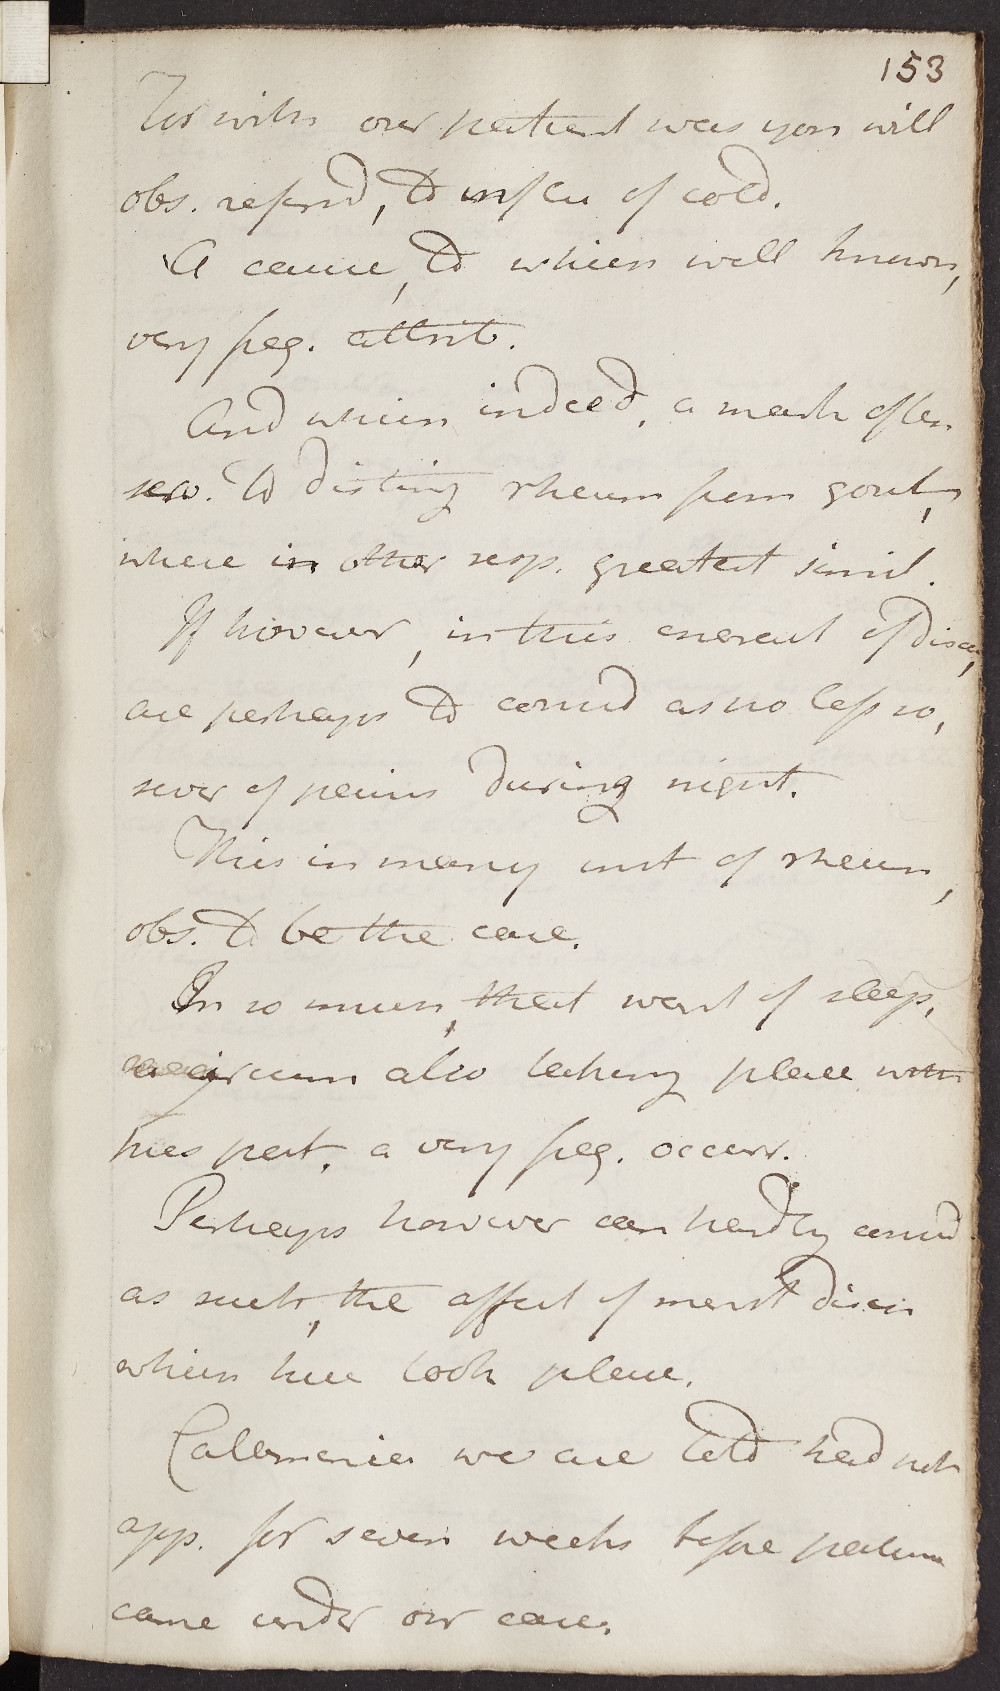 153
For with our patient was you will
obs. referd, to influ of cold.
A cause, to which well known,
very freq. attrib.
And which indeed, a mark often
serv. to disting rheum from gout,
where in other resp. greatest simil.
If however, in this extent of disea,
are perhaps to consid as no less so,
sever of pains during night.
This in many inst of rheum,
obs. to be the case.
In so much, that want of sleep,
a circum also taking place with
this pat. a very freq. occurr.
Perhaps however can hardly consid
as such, the affect of menst disch
which here took place.
Catamenia we are told had not
app. for seven weeks before patient
came under our care.